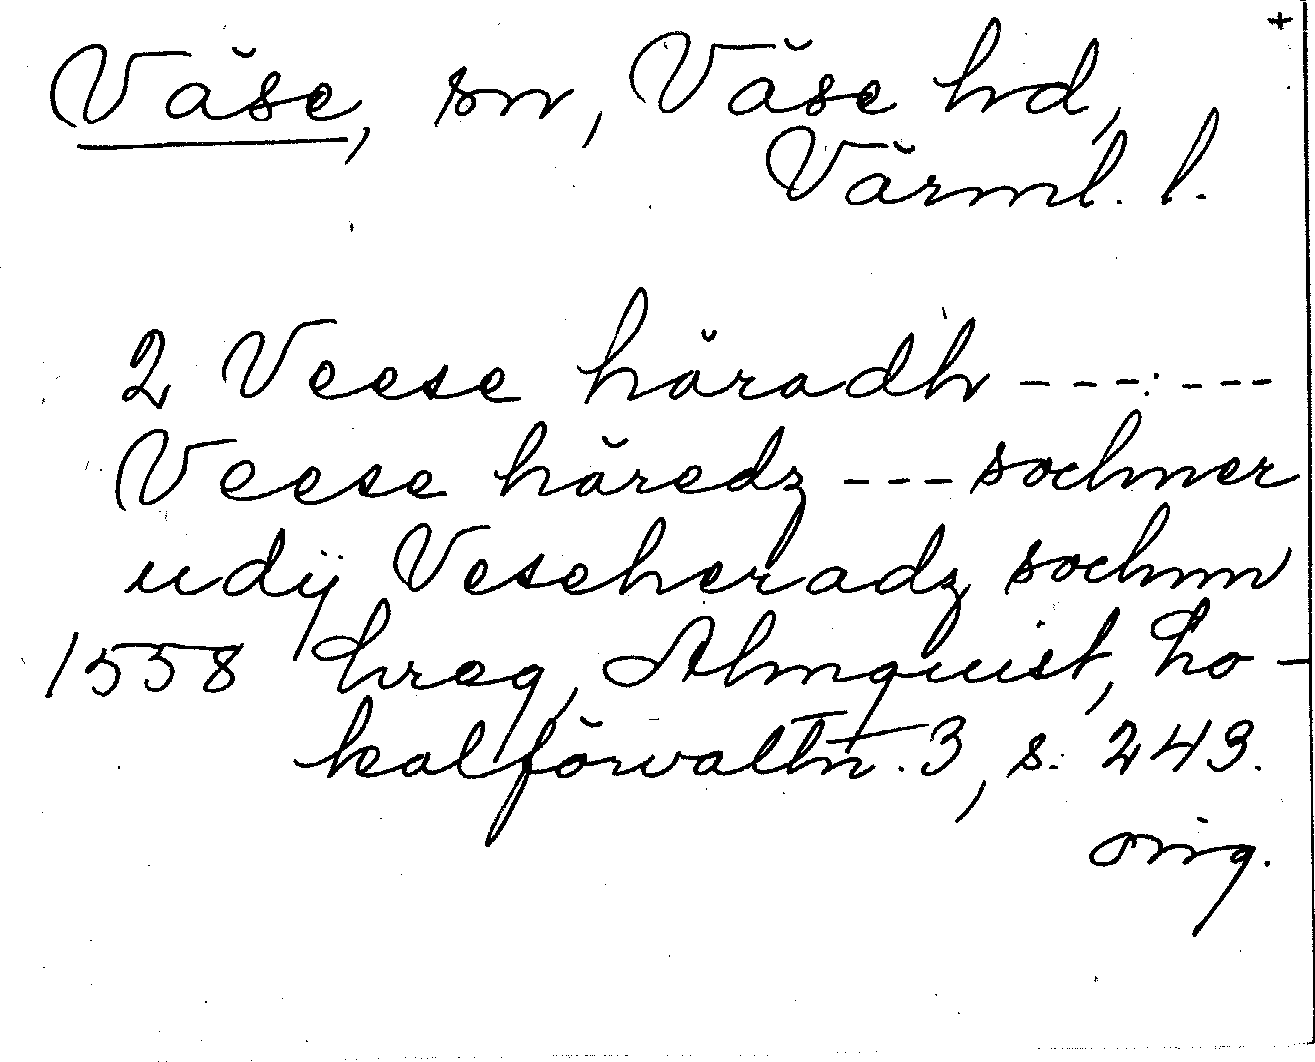 +
Väse, sn, Väse hd,
Värml. l.
2 Veese häradh ---:---
Veese häredz --- sochner
udij Veseheradz sochnn
1558 hreg, Almquist, Lo-
kalförvaltn. 3, s. 243.
orig.